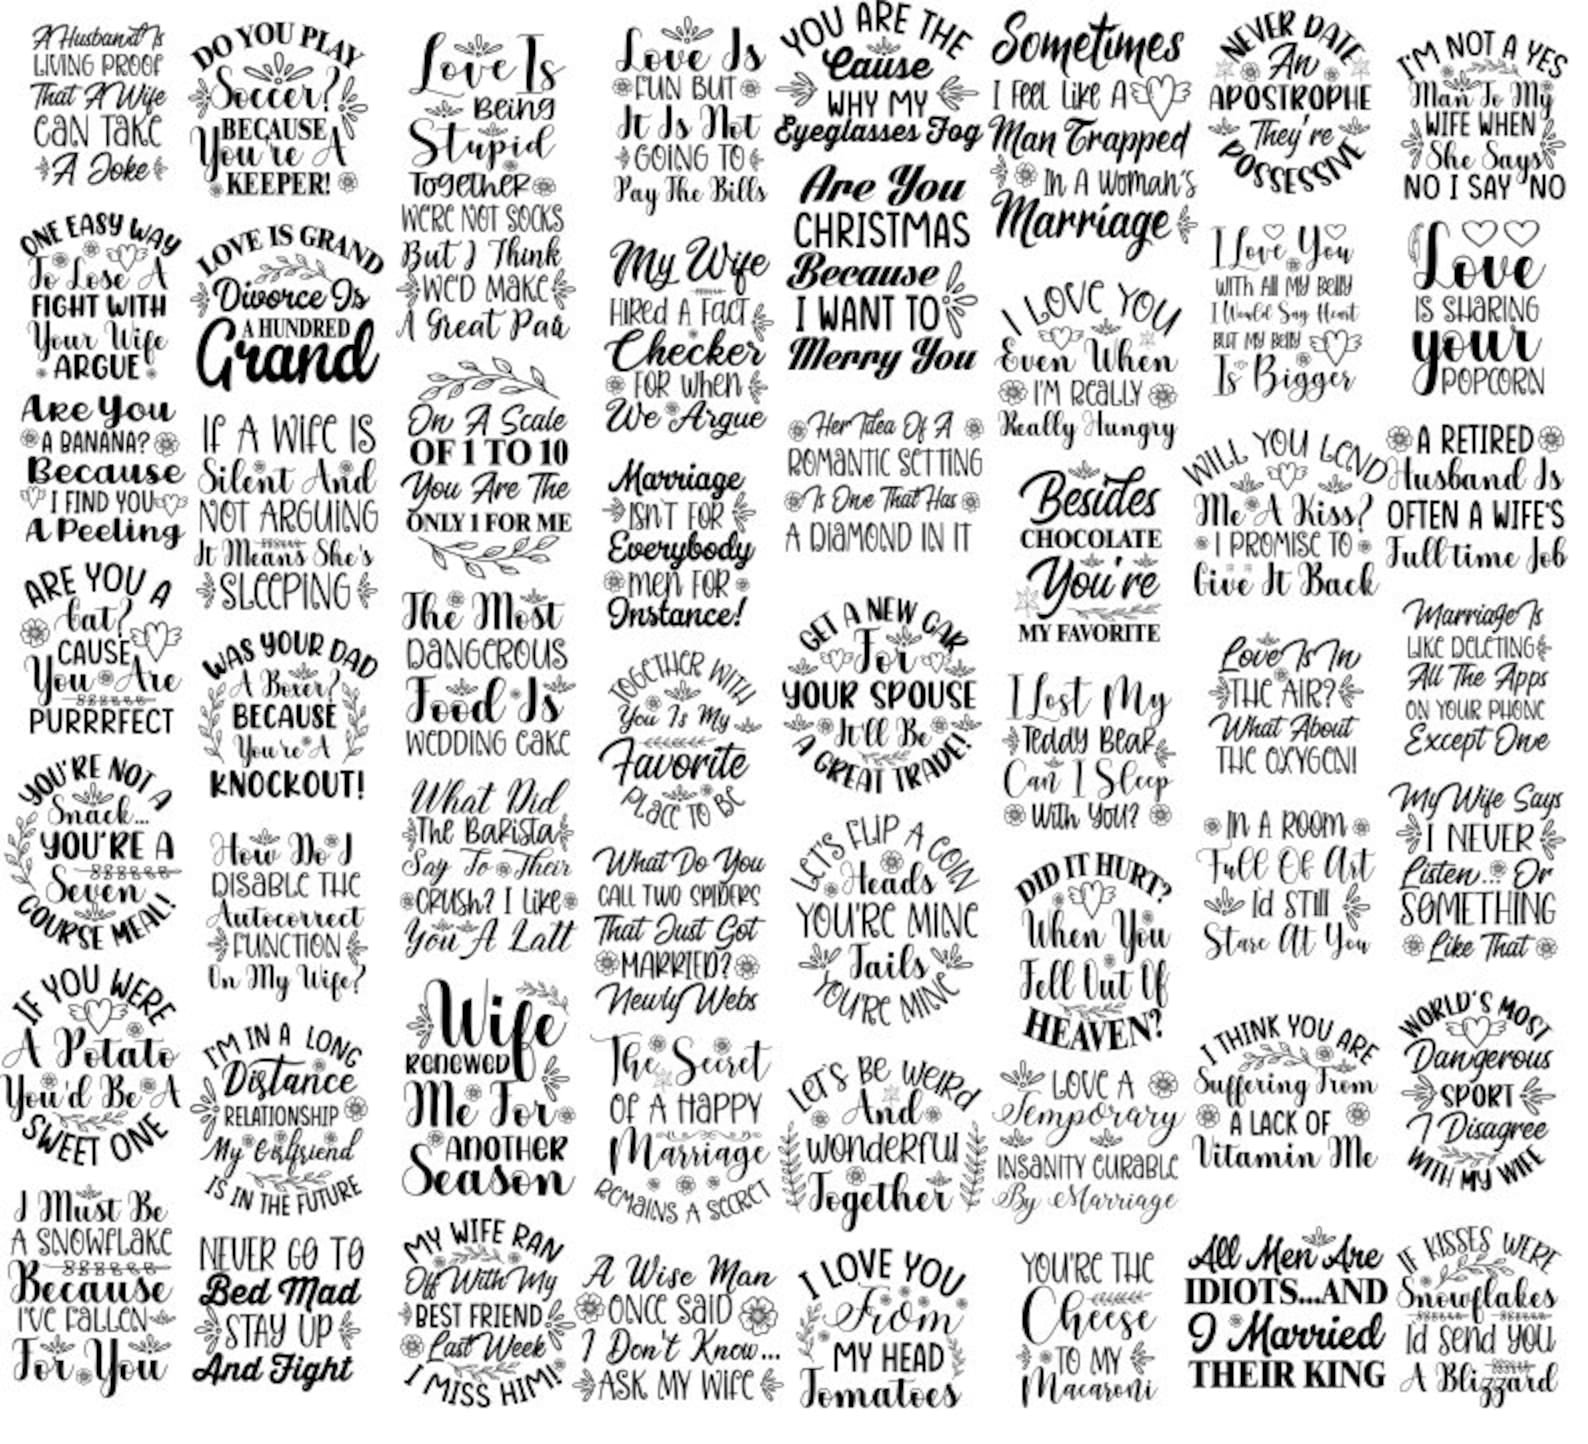 A Husband Is
LIVING PROOF
That A Wife
CAN TAKE
A Joke
ONE EASY WAY
To Lose A
FIGHT WITH
Your Wife
ARGUE
Are You
A BANANA?
Because
I FIND YOU
A Peeling
ARE YOU A
Cat?
CAUSE
You Are
PURRRFECT
YOU'RE NOT A
Snack...
YOU'RE A
Seven
COURSE MEAL!
IF YOU WERE
A Potato
You'd Be A
SWEET ONE
I Must Be
A SNOWFLAKE
Because
I'VE FALLEN
For You
DO YOU PLAY
Soccer?
BECAUSE
You're A
KEEPER!
LOVE IS GRAND
Divorce Is
A HUNDRED
Grand
IF A WIFE IS
Silent And
NOT ARGUING
It Means She's
SLEEPING
WAS YOUR DAD
A Boxer?
BECAUSE
You're A
KNOCKOUT!
How Do I
DISABLE THE
Autocorrect
FUNCTION
On My Wife?
I'M IN A LONG
Distance
RELATIONSHIP
My Girlfriend
IS IN THE FUTURE
NEVER GO TO
Bed Mad
STAY UP
And Fight
Love Is
Being
Stupid
Together
WE'RE NOT SOCKS
But I Think
WE'D MAKE
A Great Pair
On A Scale
OF 1 TO 10
You Are The
ONLY 1 FOR ME
The Most
DANGEROUS
Food Is
WEDDING CAKE
What Did
The Barista
Say To Their
CRUSH? I LIKE
You A Latt
Wife
RENEWED
Me For
ANOTHER
Season
MY WIFE RAN
Off With My
BEST FRIEND
Last Week
I MISS HIM!
Love Is
FUN BUT
It Is Not
GOING TO
Pay The Bills
My Wife
HIRED A FACT
Checker
FOR WHEN
We Argue
Marriage
ISN'T FOR
Everybody
MEN FOR
Instance!
TOGETHER WITH
You Is My
Favorite
PLACE TO BE
What Do You
CALL TWO SPIDERS
That Just Got
MARRIED?
Newly Webs
The Secret
OF A HAPPY
Marriage
REMAINS A SECRET
A Wise Man
ONCE SAID
I Don't Know...
ASK MY WIFE
YOU ARE THE
Cause
WHY MY
Eyeglasses Fog
Are You
CHRISTMAS
Because
I WANT TO
Merry You
Her Idea Of A
ROMANTIC SETTING
Is One That Has
A DIAMOND IN IT
GET A NEW CAR
For
YOUR SPOUSE
It'll Be
A GREAT TRADE!
LET'S FLIP A COIN
Heads
YOU'RE MINE
Tails
YOU'RE MINE
LET'S BE WEIRD
And
WONDERFUL
Together
I LOVE YOU
From
MY HEAD
Tomatoes
Sometimes
I FEEL LIKE A
Man Trapped
IN A WOMAN'S
Marriage
I LOVE YOU
Even When
I'M REALLY
Really Hungry
Besides
CHOCOLATE
You're
MY FAVORITE
I Lost My
Teddy Bear
Can I Sleep
With You?
DID IT HURT?
When You
Fell Out Of
HEAVEN?
LOVE A
Temporary
INSANITY CURABLE
By Marriage
YOU'RE THE
Cheese
TO MY
Macaroni
NEVER DATE
An
APOSTROPHE
They're
POSSESSIVE
I Love You
WITH ALL MY BELLY
I Would Say Heart
BUT MY BELLY
Is Bigger
WILL YOU LEND
Me A Kiss?
I PROMISE TO
Give It Back
Love Is In
THE AIR?
What About
THE OXYGEN!
IN A ROOM
Full Of Art
I'd STILL
Stare At You
I THINK YOU ARE
Suffering From
A LACK OF
Vitamin Me
All Men Are
IDIOTS...AND
I Married
THEIR KING
I'M NOT A YES
Man To My
WIFE WHEN
She Says
NO I SAY NO
Love
IS SHARING
your
POPCORN
A RETIRED
Husband Is
OFTEN A WIFE'S
Full time Job
Marriage Is
LIKE DELETING
All The Apps
ON YOUR PHONE
Except One
My Wife Says
I NEVER
Listen... Or
SOMETHING
Like That
WORLD'S MOST
Dangerous
SPORT
I Disagree
WITH MY WIFE
IF KISSES WERE
Snowflakes
I'd SEND YOU
A Blizzard